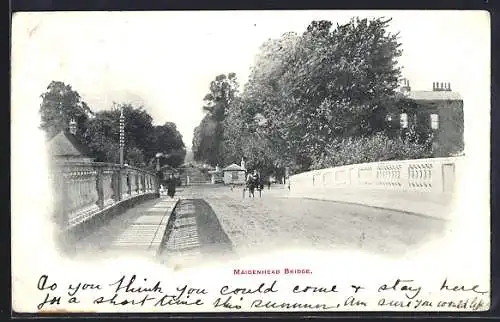 MAIDENHEAD BRIDGE.
Do you think you could come & stay here
for a short time this summer, Am sure you would like